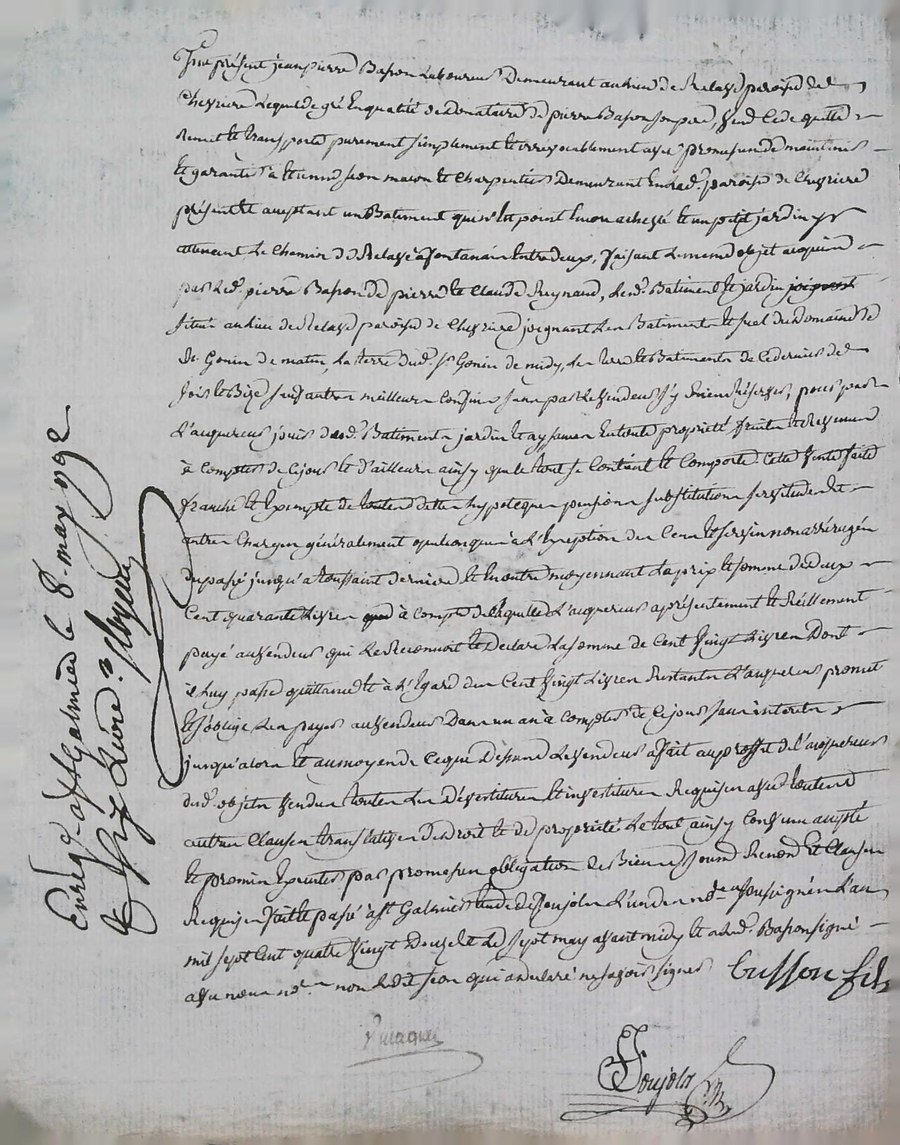 Fut présent jean pierre Basson Laboureur Demeurant au lieu de Relave paroisse de
Chevriere Lequel de gré En qualité de donataire de pierre Basson son pere, vend Cede quitte
Remet et transporte purement simplement et irrevocablement avec promesse de maintenir
et garantir à Etienne jean macon et Charpentier Demeurant paroisse de Chevriere
présent et acceptant un Batiment qui n'est point Encore achevé et un petit jardin y
attenant Le Chemin de Relave à fontanès Entre deux, faisant Le meme objet acquis
par Led. pierre Basson de pierre et Claude Reynaud, Lesd. Batiment et jardin joignent
situés au lieu de Relave paroisse de Chevriere joignant Les Batiments et suel du Domaine de
Sr Gonin de matin, La terre dud. Sr Gonin de midy, Les terre et Batiments de Ce dernier de
soir et Bize sauf autres meilleurs Confins sans par Le Vendeur s'y rien réserver, pour par
L'acquereur jouir desd. Batiment jardin et aysances En toute propriété fruits et Revenus
à Compter de Ce jour et d'ailleurs ainsy que le tout se Contient et Comporte. Cette Vente faite
franche et Exempte de toutes dettes hypoteques pensions substitutions servitudes et
autres Charges généralement quelconques à L'Exception des Cens et servis non arréragés
du passé jusqu'a toussaint dernier et Encontre moyennant Le prix et somme de deux
Cent quarante Livres à Compte de laquelle L'acquereur a présentement et Réellement
payé au Vendeur qui Le Reconnoit et Declare La somme de Cent Vingt Livres Dont
il Luy passe quittance et à L'Egard des Cent Vingt Livres Restantes L'acquereur promet
et s'oblige Les payer au Vendeur Dans un an à Compter de Ce jour sans interets
jusqu'alors et au moyen de Ce que Dessus Le Vendeur a fait au proffit de L'acquereur
desd. objets Vendus toutes Les Dévestitures et investitures Requises avec toutes
autres Clauses translatives de droit et de propriété. Le tout ainsy Convenu accepté
et promis Executer par promesses obligation de Biens soum. Renon. et Clauses
Requises fait et passé à St Galmier Etude de Poujols L'un des nores soussignés L'an
mil sept Cent quatre Vingt Douze et Le sept may avant midy et a Led. Basson signé
avec nous nres non Ledit jean qui a declaré ne savoir signer
busson fils
Poujols
Enreg. à St Galmier le 8. may 1792